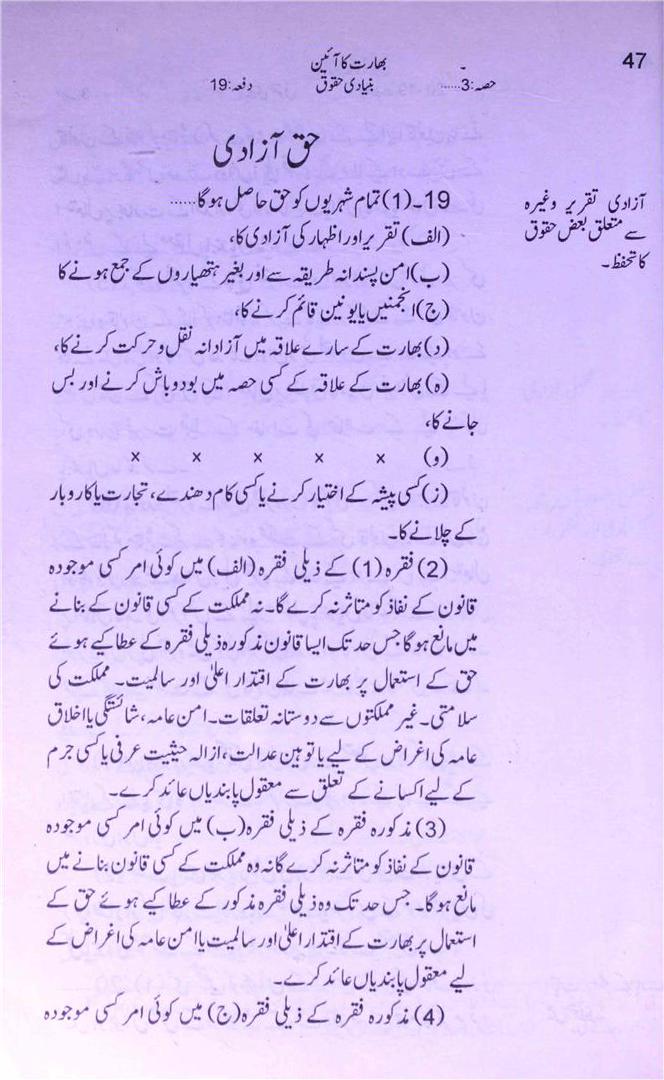 47
بھارت کا آئین
حصہ:3...... بنیادی حقوق دفعہ:19
حق آزادی
آزادی تقریر وغیرہ
سے متعلق بعض حقوق
کا تحفظ۔
19۔(1) تمام شہریوں کو حق حاصل ہوگا......
(الف) تقریر اور اظہار کی آزادی کا،
(ب) امن پسندانہ طریقہ سے اور بغیر ہتھیاروں کے جمع ہونے کا
(ج) انجمنیں یا یونین قائم کرنے کا،
(د) بھارت کے سارے علاقہ میں آزادانہ نقل و حرکت کرنے کا،
(ہ) بھارت کے علاقہ کے کسی حصہ میں بود و باش کرنے اور بس
جانے کا،
(و) x x x x x
(ز) کسی پیشہ کے اختیار کرنے یا کسی کام دھندے، تجارت یا کاروبار
کے چلانے کا۔
(2) فقرہ (1) کے ذیلی فقرہ (الف) میں کوئی امر کسی موجودہ
قانون کے نفاذ کو متاثر نہ کرے گا۔ نہ مملکت کے کسی قانون کے بنانے
میں مانع ہوگا جس حد تک ایسا قانون مذکورہ ذیلی فقرہ کے عطا کیے ہوئے
حق کے استعمال پر بھارت کے اقتدار اعلیٰ اور سالمیت۔ مملکت کی
سلامتی۔ غیر مملکتوں سے دوستانہ تعلقات۔ امن عامہ، شائستگی یا اخلاق
عامہ کی اغراض کے لیے یا توہین عدالت، ازالہ حیثیت عرفی یا کسی جرم
کے لیے اکسانے کے تعلق سے معقول پابندیاں عائد کرے۔
(3) مذکورہ فقرہ کے ذیلی فقرہ (ب) میں کوئی امر کسی موجودہ
قانون کے نفاذ کو متاثر نہ کرے گا نہ وہ مملکت کے کسی قانون بنانے میں
مانع ہوگا۔ جس حد تک وہ ذیلی فقرہ مذکور کے عطا کیے ہوئے حق کے
استعمال پر بھارت کے اقتدار اعلیٰ اور سالمیت یا امن عامہ کی اغراض کے
لیے معقول پابندیاں عائد کرے۔
(4) مذکورہ فقرہ کے ذیلی فقرہ (ج) میں کوئی امر کسی موجودہ